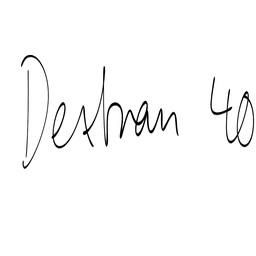 Dextran 40